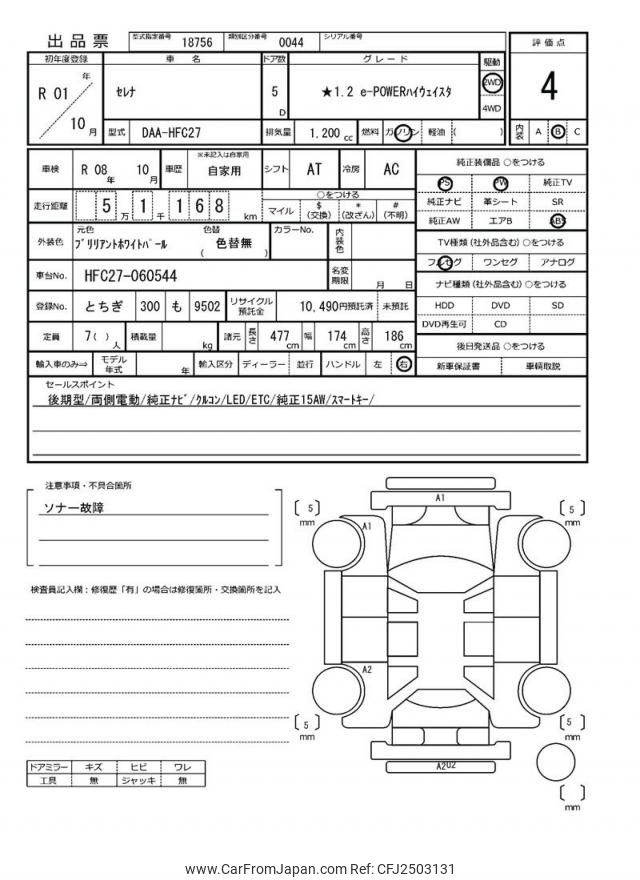 出品票 型式指定番号 18756 類別区分番号 0044 シリアル番号
初年度登録 車 名 ドア数 グレード 駆動 評価点
R 01 年 10 月 セレナ 5 D ★1.2 e-POWERハイウェイスタ 2WD 4WD 4
型式 DAA-HFC27 排気量 1,200 cc 燃料 ガソリン 軽油 ( ) 内装 A B C
車検 R 08 年 10 月 車歴 ※未記入は自家用 自家用 シフト AT 冷房 AC
純正装備品 ○をつける
PS PW 純正TV
純正ナビ 革シート SR
純正AW エアB ABS
走行距離 5 万 1 千 1 6 8 km ○をつける マイル $ (交換) * (改ざん) # (不明)
外装色 元色 ブリリアントホワイトパール 色替 ( 色替無 ) カラーNo. 内装色
TV種類 (社外品含む) ○をつける
フルセグ ワンセグ アナログ
車台No. HFC27-060544 名変期限 月 日
ナビ種類 (社外品含む) ○をつける
HDD DVD SD
DVD再生可 CD
登録No. とちぎ 300 も 9502 リサイクル預託金 10,490円預託済 未預託
定員 7( ) 人 積載量 kg 諸元 長さ 477 cm 幅 174 cm 高さ 186 cm
後日発送品 ○をつける
新車保証書 車輌取説
輸入車のみ⇒ モデル年式 年 輸入区分 ディーラー 並行 ハンドル 左 右
セールスポイント
後期型/両側電動/純正ナビ/クルコン/LED/ETC/純正15AW/スマートキー/
注意事項・不具合箇所
ソナー故障
検査員記入欄:修復歴「有」の場合は修復箇所・交換箇所を記入
A1
5 mm
5 mm
A1
A2
5 mm
5 mm
A2U2
mm
ドアミラー キズ ヒビ ワレ
工具 無 ジャッキ 無
www.CarFromJapan.com Ref: CFJ2503131